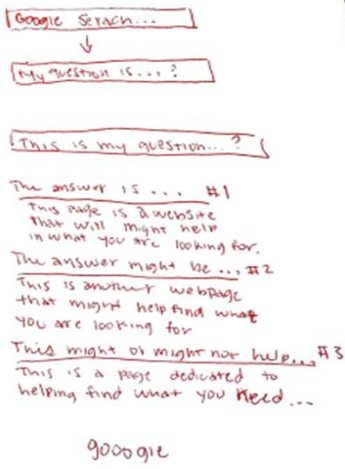 Google Serach...
My question is...?
This is my question...?
The answer is... #1
This page is a website
that will might help
in what you are looking for.
The answer might be... #2
This is another webpage
that might help find what
you are looking for
This might or might not help... #3
This is a page dedicated to
helping find what you need...
gooogle